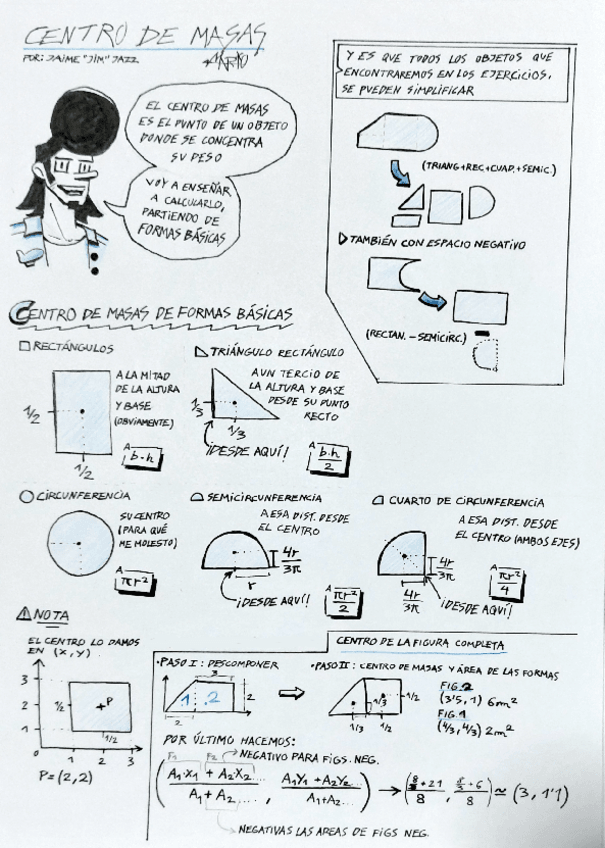 CENTRO DE MASAS
POR: JAIME "JIM" JAZZ
EL CENTRO DE MASAS
ES EL PUNTO DE UN OBJETO
DONDE SE CONCENTRA
SU PESO
VOY A ENSEÑAR
A CALCULARLO,
PARTIENDO DE
FORMAS BÁSICAS
Y ES QUE TODOS LOS OBJETOS QUE
ENCONTRAREMOS EN LOS EJERCICIOS,
SE PUEDEN SIMPLIFICAR
(TRIANG+REC+CUAD.+SEMIC.)
TAMBIÉN CON ESPACIO NEGATIVO
(RECTAN. - SEMICIRC.)
CENTRO DE MASAS DE FORMAS BÁSICAS
RECTÁNGULOS
1/2
1/2
A LA MITAD
DE LA ALTURA
Y BASE
(OBVIAMENTE)
A
b·h
TRIÁNGULO RECTÁNGULO
1/3
1/3
A UN TERCIO DE
LA ALTURA Y BASE
DESDE SU PUNTO
RECTO
¡DESDE AQUÍ!
A
b.h
2
CIRCUNFERENCIA
SU CENTRO
(PARA QUÉ
ME MOLESTO)
A
πr²
SEMICIRCUNFERENCIA
A ESA DIST. DESDE
EL CENTRO
4r
3π
r
¡DESDE AQUÍ!
A
πr²
2
CUARTO DE CIRCUNFERENCIA
A ESA DIST. DESDE
EL CENTRO (AMBOS EJES)
4r
3π
4r
3π
¡DESDE AQUÍ!
A
πr²
4
NOTA
EL CENTRO LO DAMOS
EN (X, Y).
3
2
1
0
1/2
P
1/2
1 2 3
P=(2,2)
CENTRO DE LA FIGURA COMPLETA
·PASO I: DESCOMPONER
3
1 2
2
2
·PASO II: CENTRO DE MASAS Y ÁREA DE LAS FORMAS
1/3
1/2
1/3 1/2
FIG.2
(3'5, 1) 6m²
FIG.1
(4/3, 4/3) 2m²
POR ÚLTIMO HACEMOS:
F1 F2 NEGATIVO PARA FIGS. NEG.
(A₁·X₁ + A₂X₂... / A₁+A₂..., A₁Y₁+A₂Y₂... / A₁+A₂...) → (8/3+21 / 8, 8/3+6 / 8) ≃ (3, 1'1)
NEGATIVAS LAS AREAS DE FIGS NEG.